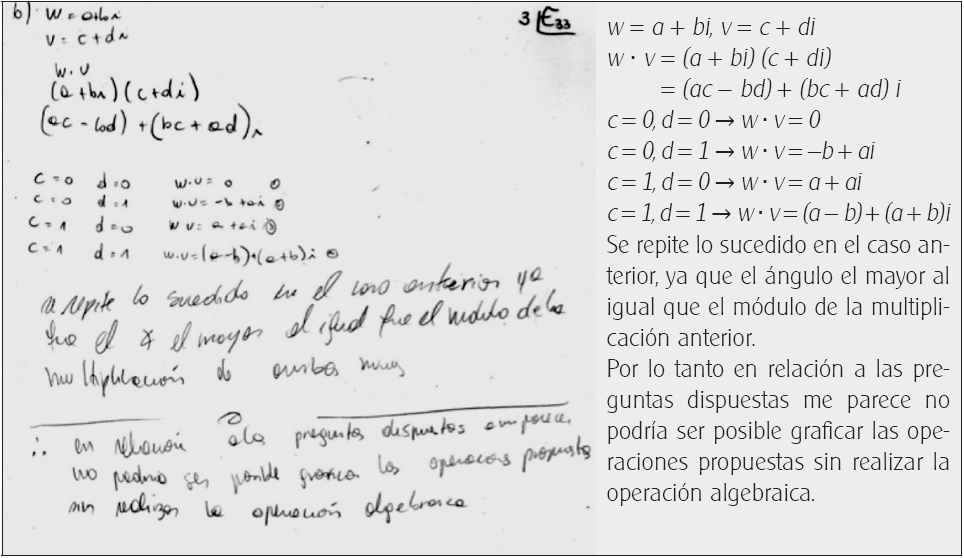 b) w = a+bi
v = c+di
w.v
(a+bi)(c+di)
(ac-bd)+(bc+ad)i
c=0 d=0 w.v= 0 ⓪
c=0 d=1 w.v= -b+ai
c=1 d=0 w v= a+ai
c=1 d=1 w.v=(a-b)+(a+b)i
repite lo sucedido en el caso anterior ya
el ∡ el mayor al igual que el módulo de la
multiplicación de ambas
∴ en relación a las preguntas dispuestas me parece
no podría ser posible graficar las operaciones propuestas
sin realizar la operación algebraica
3 E33
w = a + bi, v = c + di
w · v = (a + bi) (c + di)
= (ac – bd) + (bc + ad) i
c = 0, d = 0 → w · v = 0
c = 0, d = 1 → w · v = –b + ai
c = 1, d = 0 → w · v = a + ai
c = 1, d = 1 → w · v = (a – b) + (a + b)i
Se repite lo sucedido en el caso an-
terior, ya que el ángulo el mayor al
igual que el módulo de la multipli-
cación anterior.
Por lo tanto en relación a las pre-
guntas dispuestas me parece no
podría ser posible graficar las ope-
raciones propuestas sin realizar la
operación algebraica.